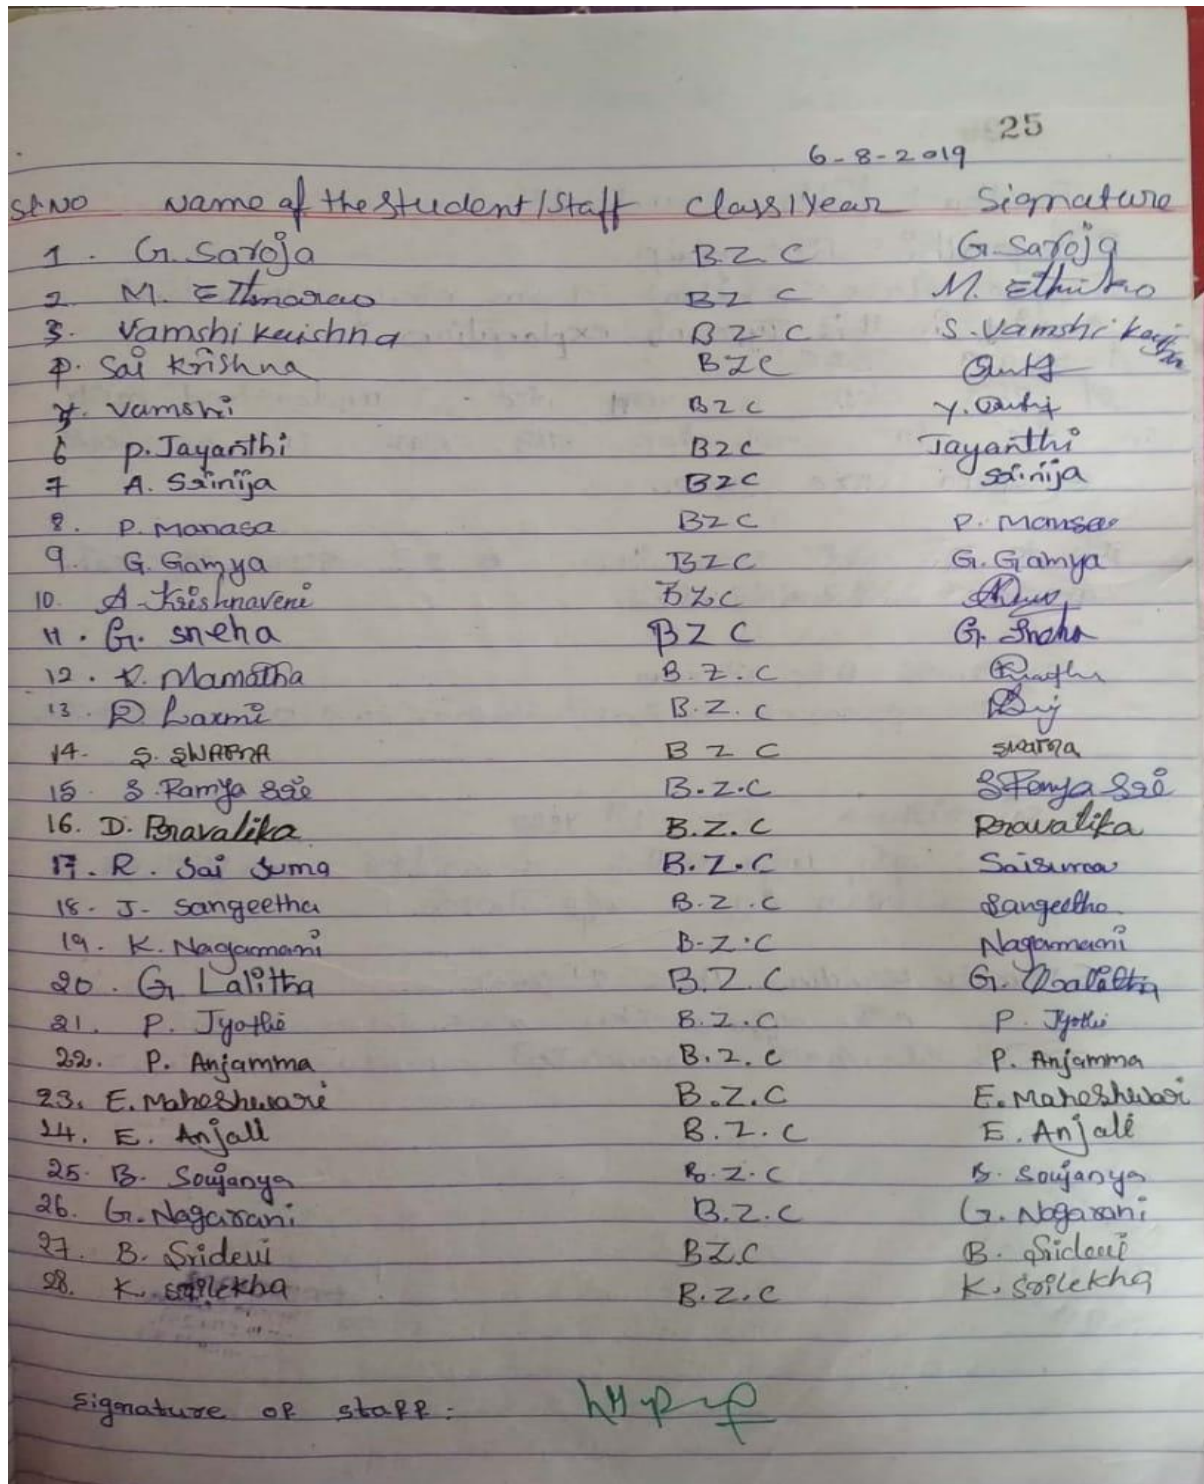 25
6-8-2019
Sl.No Name of the Student/Staff Class/Year Signature
1. G. Saroja B.Z.C G. Saroja
2. M. B Z C M.
3. Vamshi Krishna B Z C S. Vamshi
4. Sai Krishna BZC
5. Vamshi BZC Y.
6 P. Jayanthi BZC Jayanthi
7 A. Srinija BZC Srinija
8. P. Manasa BZC P. Manasa
9. G. Gamya BZC G. Gamya
10. A. Krishnaveni BZC
11. G. Sneha BZC G. Sneha
12. Mamatha B.Z.C
13. D Laxmi B.Z.C
14. S. SWARNA B Z C Swarna
15. S. Ramya Sri B.Z.C S Ramya Sri
16. D. Pravalika B.Z.C Pravalika
17. R. Sai Suma B.Z.C Saisuma
18. J. Sangeetha B.Z.C Sangeetha
19. K. Nagamani B.Z.C Nagamani
20. G Lalitha B.Z.C G.
21. P. Jyothi B.Z.C P. Jyothi
22. P. Anjamma B.Z.C P. Anjamma
23. E. Maheshwari B.Z.C E. Maheshwari
24. E. Anjali B.Z.C E. Anjali
25. B. Soujanya B.Z.C B. Soujanya
26. G. Nagarani B.Z.C G. Nagarani
27. B. Sridevi BZC B. Sridevi
28. K. Srilekha B.Z.C K. Srilekha
Signature of staff: